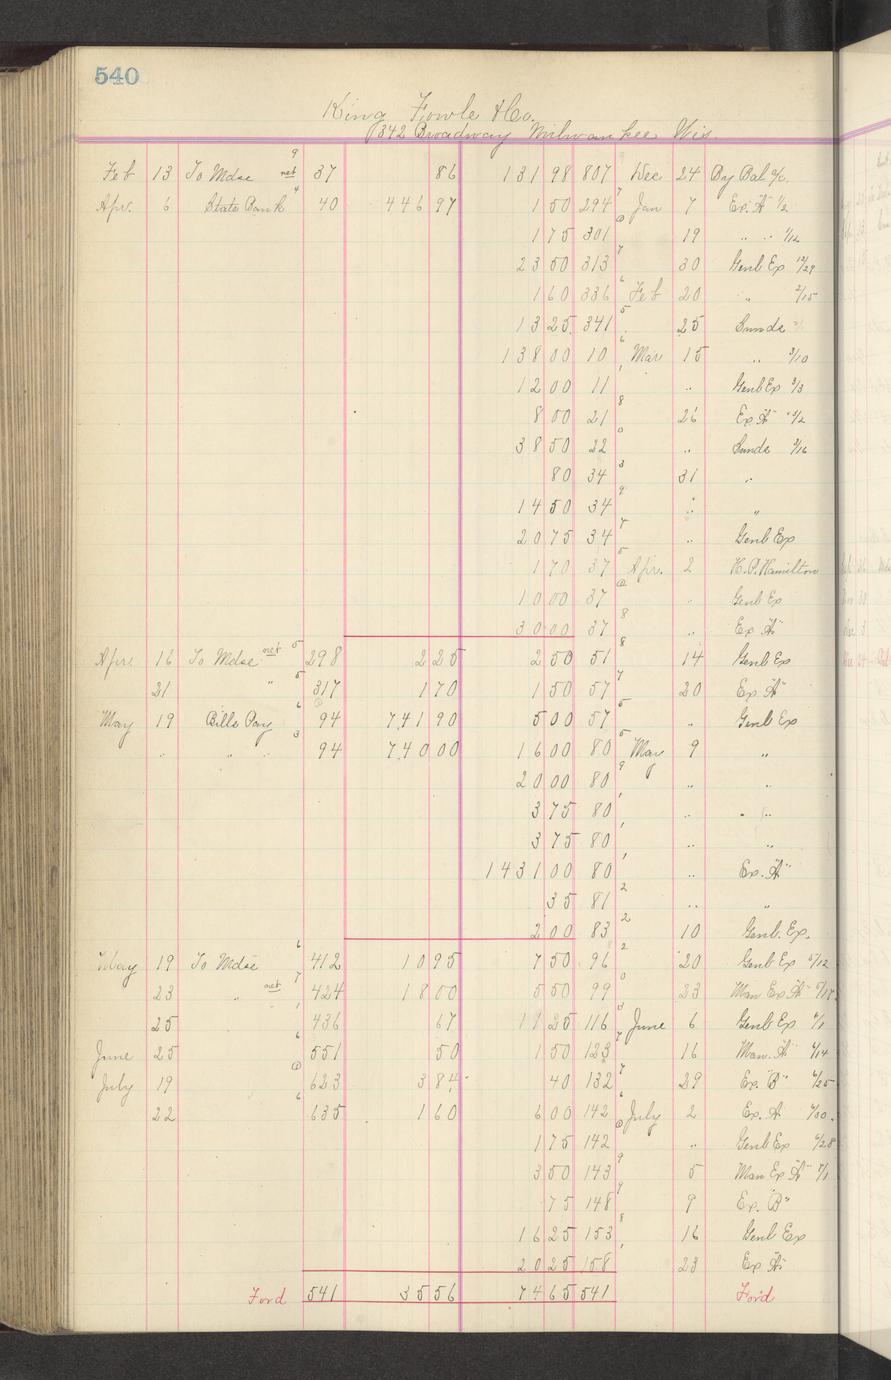 540
King Fowle & Co.
342 Broadway Milwaukee Wis.
Feb 13 To Mdse net 9 37 86 131 98 807 Dec 24 By Bal a/c
Apr. 6 State Bank 4 40 446 97 1 50 294 7 Jan 7 Ex. "A" 1/2
1 75 301 19 " " 1/12
23 50 313 7 30 Genl Ex 12/29
1 60 336 6 Feb 20 " 2/15
13 25 341 5 25 Sunds
138 00 10 6 Mar 15 " 3/10
12 00 11 1 " Genl Ex 3/3
8 00 21 8 26 Ex. "A"
38 50 22 0 " Sunds 3/16
80 34 3 31 "
14 50 34 9 " "
20 75 34 7 " Genl Ex
1 70 37 5 Apr. 2 H.P. Hamilton
10 00 37 " Genl Ex
30 00 37 8 " Ex "A"
Apr. 16 To Mdse net 5 298 2 25 2 50 51 8 14 Genl Ex
21 " 5 317 1 70 1 50 57 7 20 Ex "A"
May 19 Bills Pay 6 94 741 90 5 00 57 5 " Genl Ex
" " " " 3 94 740 00 16 00 80 5 May 9 "
20 00 80 9 " "
3 75 80 1 " "
3 75 80 1 " "
1431 00 80 1 " Ex. "A"
35 81 2 " "
2 00 83 2 10 Genl. Ex.
May 19 To Mdse 6 412 10 95 7 50 96 2 20 Genl Ex 5/12
23 " net 7 424 18 00 5 50 99 0 23 Man Ex "A" 5/17
25 1 436 67 11 25 116 3 June 6 Genl Ex 6/1
June 25 6 551 50 1 50 123 7 16 Man. "A" 6/14
July 19 623 3 84 40 132 7 29 Ex. "B" 6/25
22 6 635 1 60 6 00 142 6 July 2 Ex. A 6/30
1 75 142 " Genl Ex 6/28
3 50 143 9 5 Man Ex "A" 7/1
75 148 9 9 Ex. "B"
16 25 153 8 16 Genl Ex
20 25 158 1 23 Ex "A"
Ford 541 35 56 74 65 541 Ford